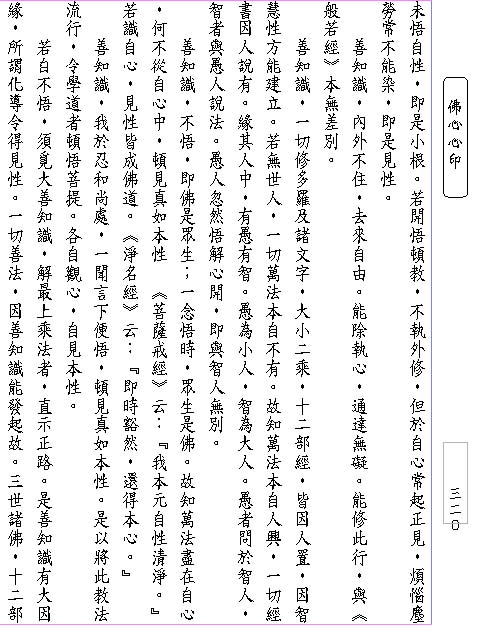 佛心心印
三二〇
未悟自性，即是小根。若開悟頓教，不執外修，但於自心常起正見，煩惱塵
勞常不能染，即是見性。
善知識，內外不住，去來自由。能除執心，通達無礙。能修此行，與《
般若經》本無差別。
善知識，一切修多羅及諸文字，大小二乘，十二部經，皆因人置，因智
慧性方能建立。若無世人，一切萬法本自不有。故知萬法本自人興，一切經
書因人說有。緣其人中，有愚有智。愚為小人，智為大人。愚者問於智人，
智者與愚人說法。愚人忽然悟解心開，即與智人無別。
善知識，不悟，即佛是眾生；一念悟時，眾生是佛。故知萬法盡在自心
，何不從自心中，頓見真如本性　《菩薩戒經》云：『我本元自性清淨。』
若識自心，見性皆成佛道。《淨名經》云：『即時豁然，還得本心。』
善知識，我於忍和尚處，一聞言下便悟，頓見真如本性。是以將此教法
流行，令學道者頓悟菩提。各自觀心，自見本性。
若自不悟，須覓大善知識，解最上乘法者，直示正路。是善知識有大因
緣，所謂化導令得見性。一切善法，因善知識能發起故。三世諸佛，十二部